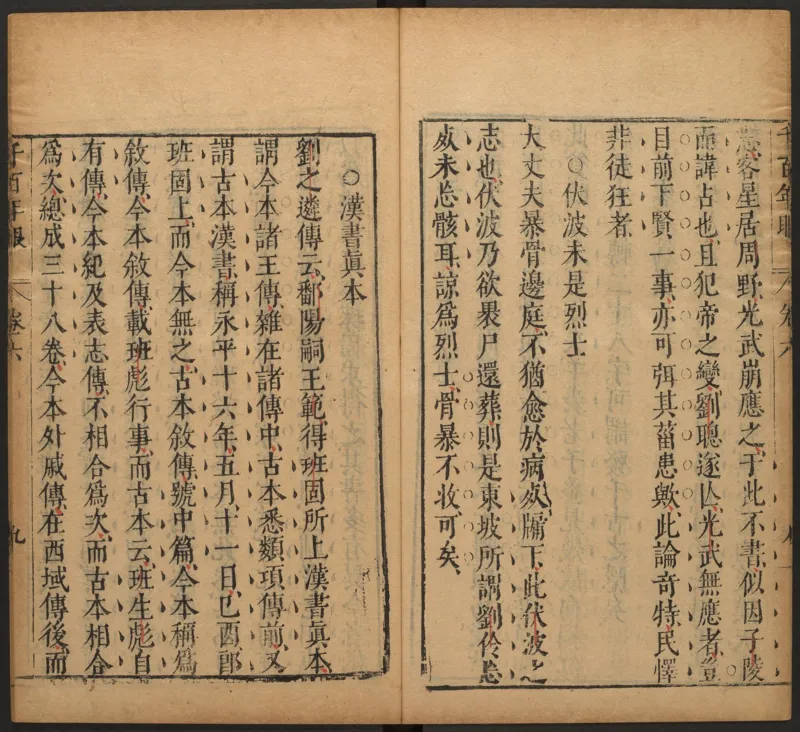 千百年眼 卷六
客星居周野光武崩應之于此不書似因子陵
而諱占也且犯帝之變劉聰遂亾光武無應者豈
目前下賢一事亦可弭其菑患歟此論奇特民懌
非徒狂者
○伏波未是烈士
大丈夫暴骨邊庭不猶愈於病死牖下此伏波之
志也伏波乃欲褁尸還葬則是東坡所謂劉伶忘
死未忘骸耳諒爲烈士骨暴不收可矣
○漢書眞本
劉之遴傳云鄱陽嗣王範得班固所上漢書眞本
謂今本諸王傳雜在諸傳中古本悉類項傳前又
謂古本漢書稱永平十六年五月十一日己酉郎
班固上而今本無之古本敘傳號中篇今本稱爲
敘傳今本敘傳載班彪行事而古本云班生彪自
有傳今本紀及表志傳不相合爲次而古本相合
爲次總成三十八卷今本外戚傳在西域傳後而
千百年眼 卷六 九